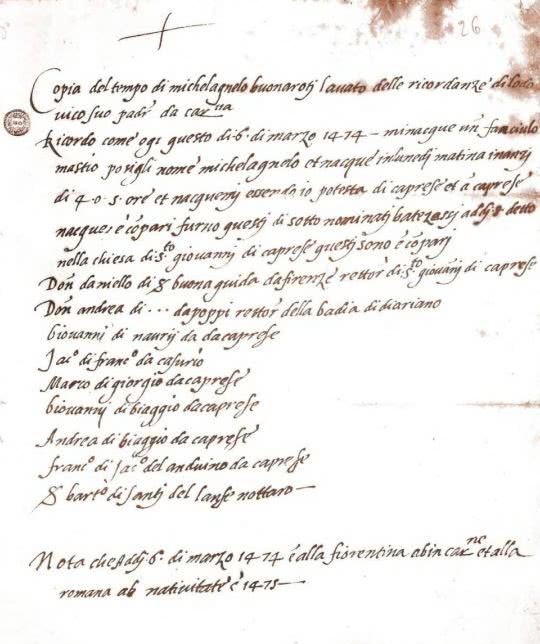 26
Copia del tempo di michelagnelo buonarotj lauato delle ricordanze di lodo
uico suo padr̄ da car^na
Ricordo come ogi questo di 6. di marzo 1474 – minacque un fanciulo
mastio posigli nome michelagnelo et nacque inlunedj matina inanzj
di 4 · o · 5 · ore et nacquemj essendo io potesta di caprese et a caprese
nacque; e cōpari furno questj di sotto nominatj batezossj addj 8 detto
nella chiesa di s.^to giovannj di caprese questj sono e cōparj
Don daniello di s buonaguida dafirenze rettor̄ di s.^to giovannj di caprese
Don andrea di ... dapoppi rettor̄ della badia di diariano
Giovannj di dacaprese
Jac.° di franc.° da casurio
Marco di giorgio dacaprese
Giovannj di biaggio dacaprese
Andrea di biaggio da caprese
franc.° di Jac.° del anduino da caprese
S bart.° di santj del lanse nottaro —
Nota che Addj 6. di marzo 1474 è alla fiorentina abincar^ne et alla
romana ab natiuitate è 1475 —